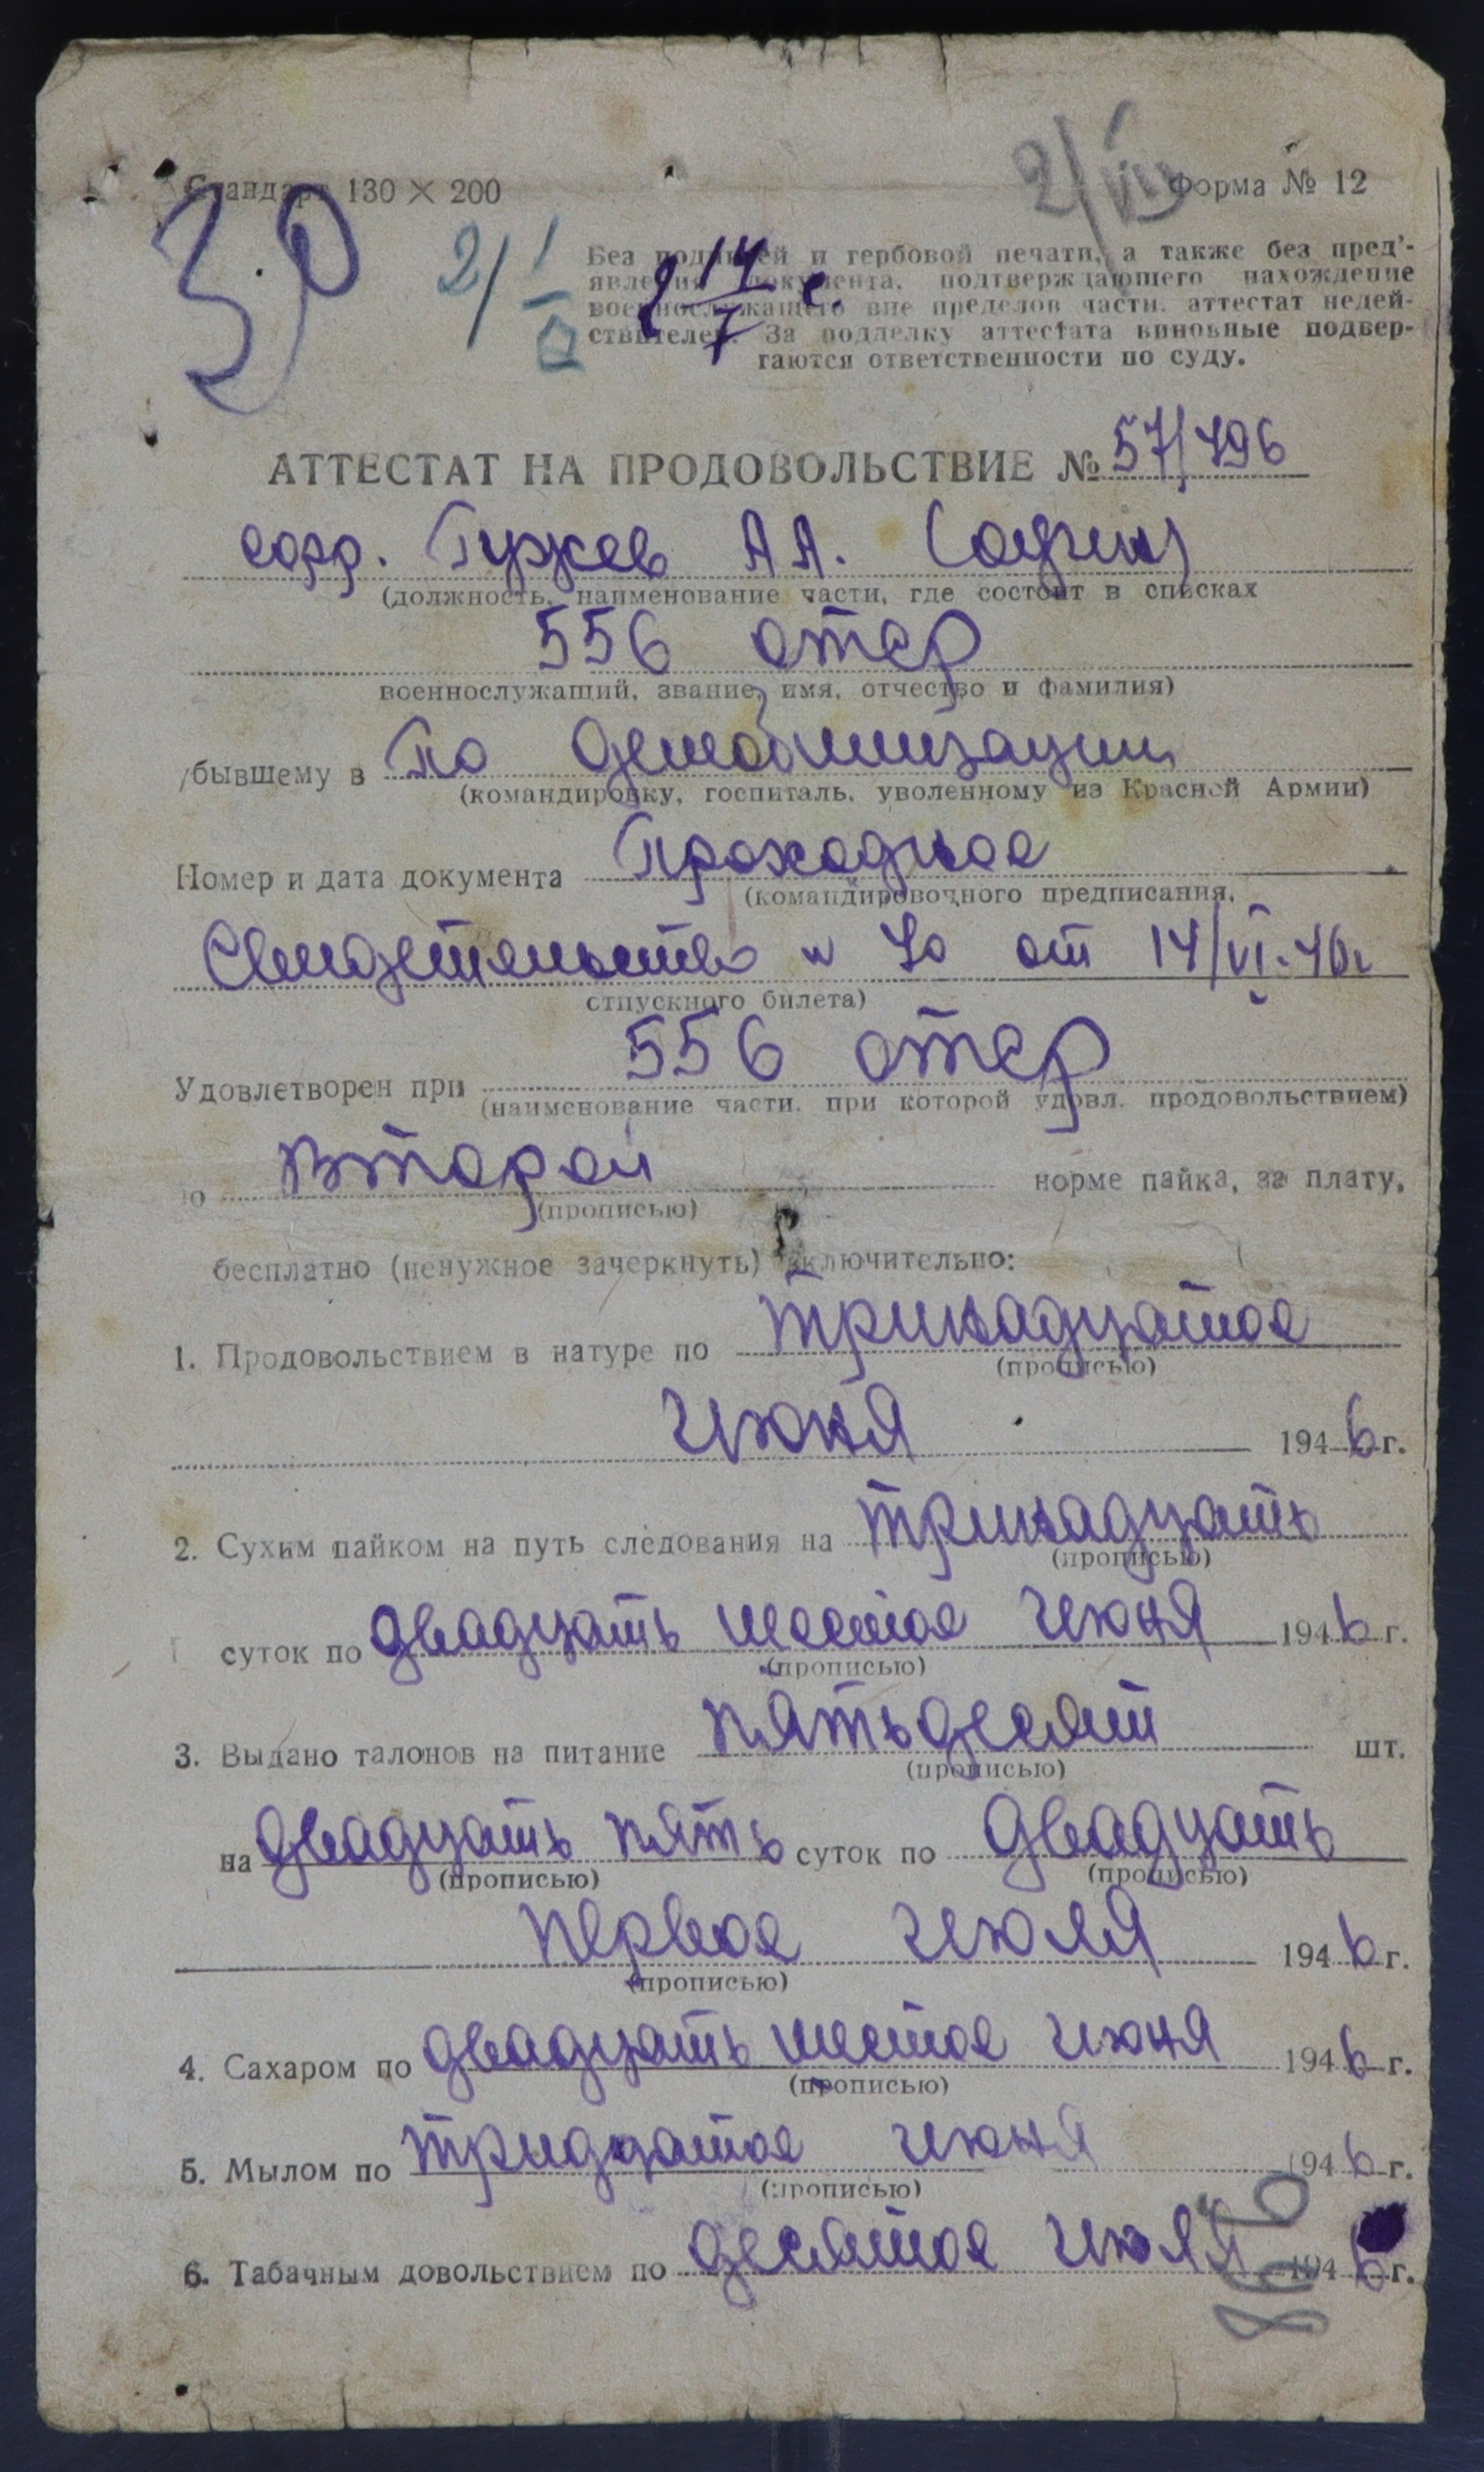 Стандарт 130 × 200
Форма № 12
Без подписей и гербовой печати, а также без пред'-
явления документа, подтверждающего нахождение
военнослужащего вне пределов части, аттестат недей-
ствителен. За подделку аттестата виновные подвер-
гаются ответственности по суду.
АТТЕСТАТ НА ПРОДОВОЛЬСТВИЕ № 57/796
ефр. Гужев А А. (один)
(должность, наименование части, где состоит в списках
556 отср
военнослужащий, звание, имя, отчество и фамилия)
убывшему в По демобилизации
(командировку, госпиталь, уволенному из Красной Армии)
Номер и дата документа Проходное
(командировочного предписания,
Свидетельство № 70 от 14/VI-46г
отпускного билета)
556 отср
Удовлетворен при
(наименование части, при которой удовл. продовольствием)
по второй норме пайка, за плату,
(прописью)
бесплатно (ненужное зачеркнуть) включительно:
1. Продовольствием в натуре по тринадцатое
(прописью)
июня 1946 г.
2. Сухим пайком на путь следования на тринадцать
(прописью)
суток по двадцать шестое июня 1946 г.
(прописью)
3. Выдано талонов на питание пятьдесят шт.
(прописью)
на двадцать пять суток по двадцать
(прописью) (прописью)
первое июля 1946 г.
(прописью)
4. Сахаром по двадцать шестое июня 1946 г.
(прописью)
5. Мылом по тридцатое июня 1946 г.
(прописью)
6. Табачным довольствием по десятое июля 1946 г.